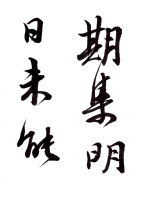 期集明
日未能